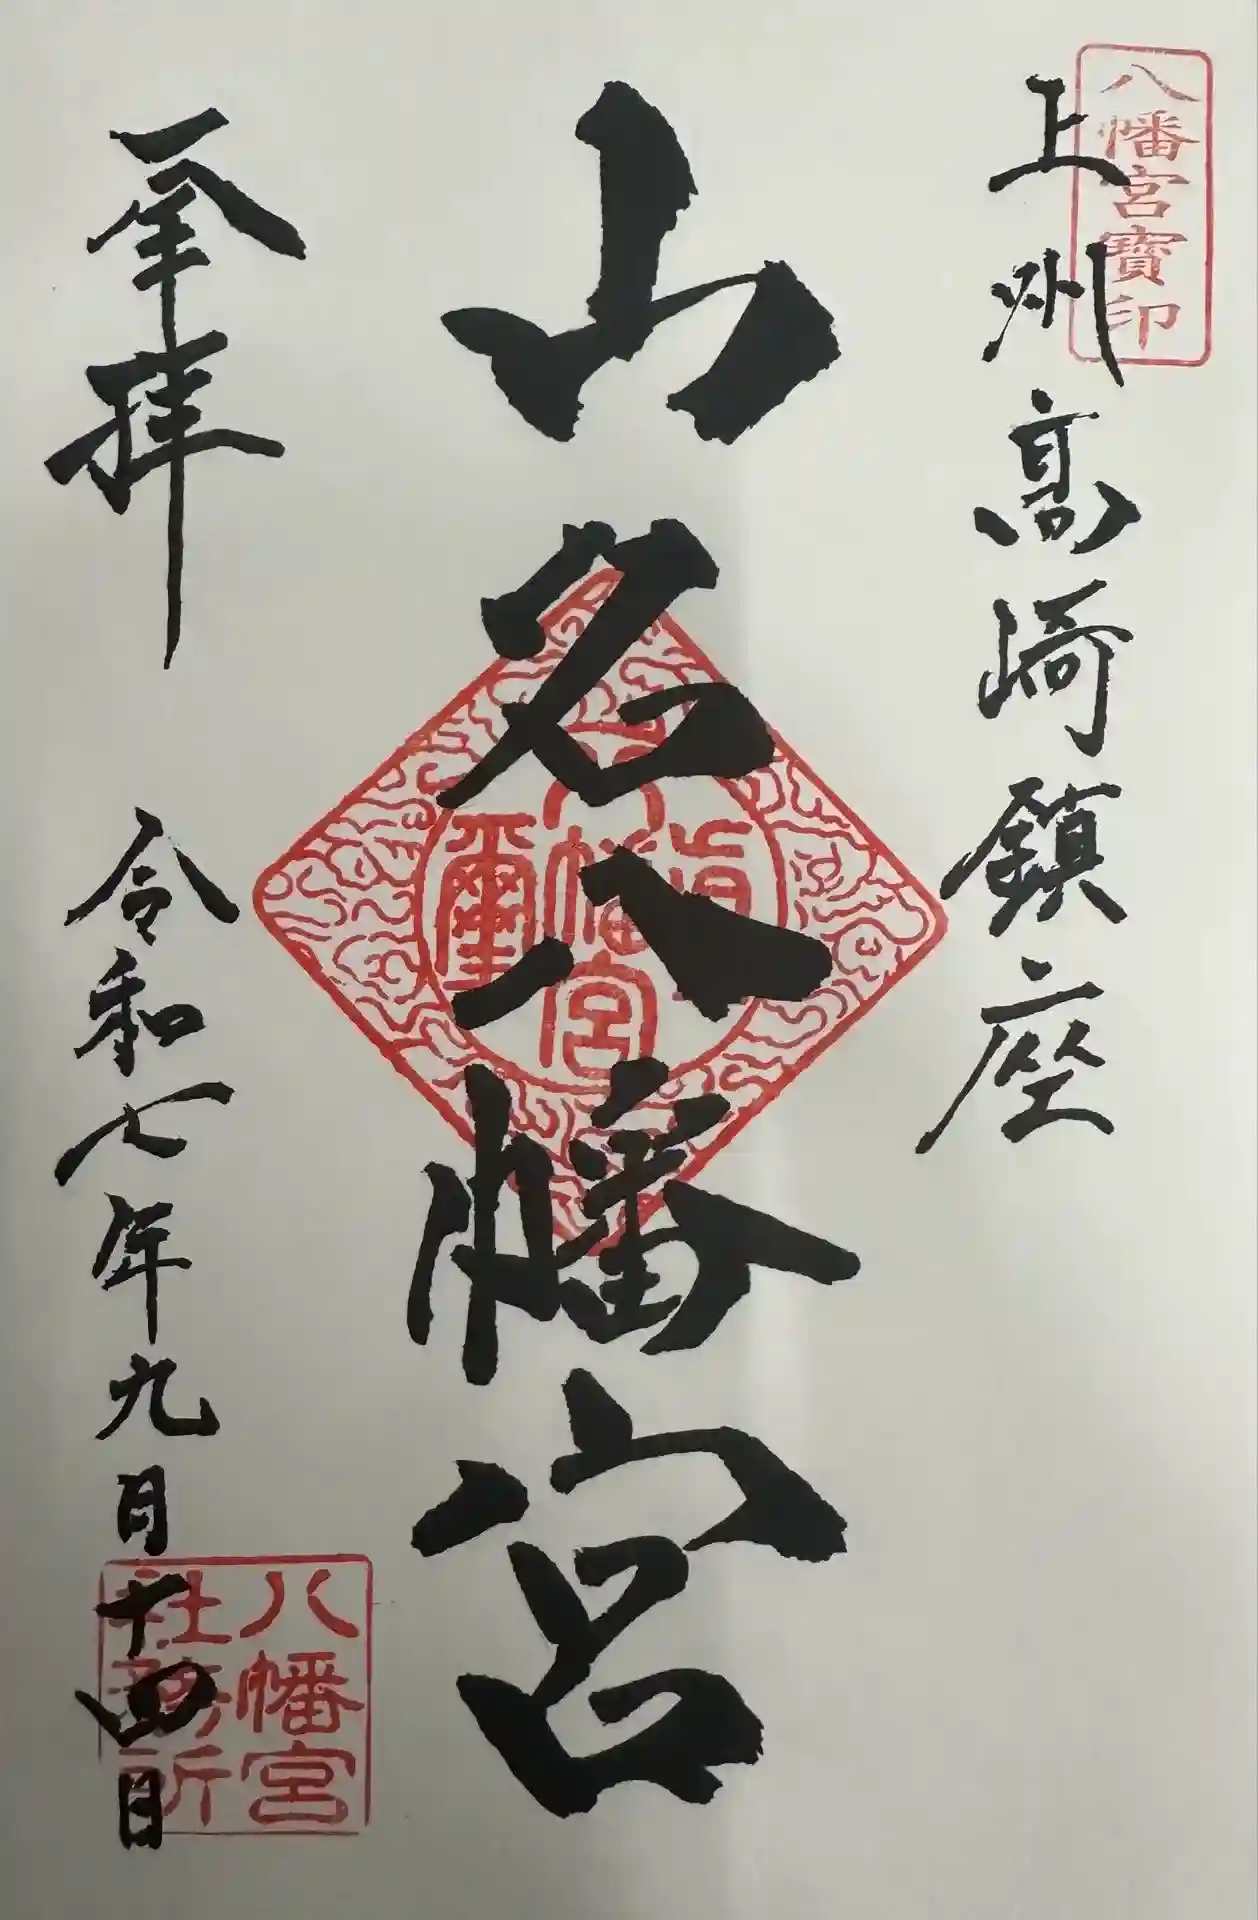 八幡宮寶印
上州高崎鎮座
山名八幡宮
八幡宮
璽
奉拝
令和七年九月十四日
八幡宮
社務所